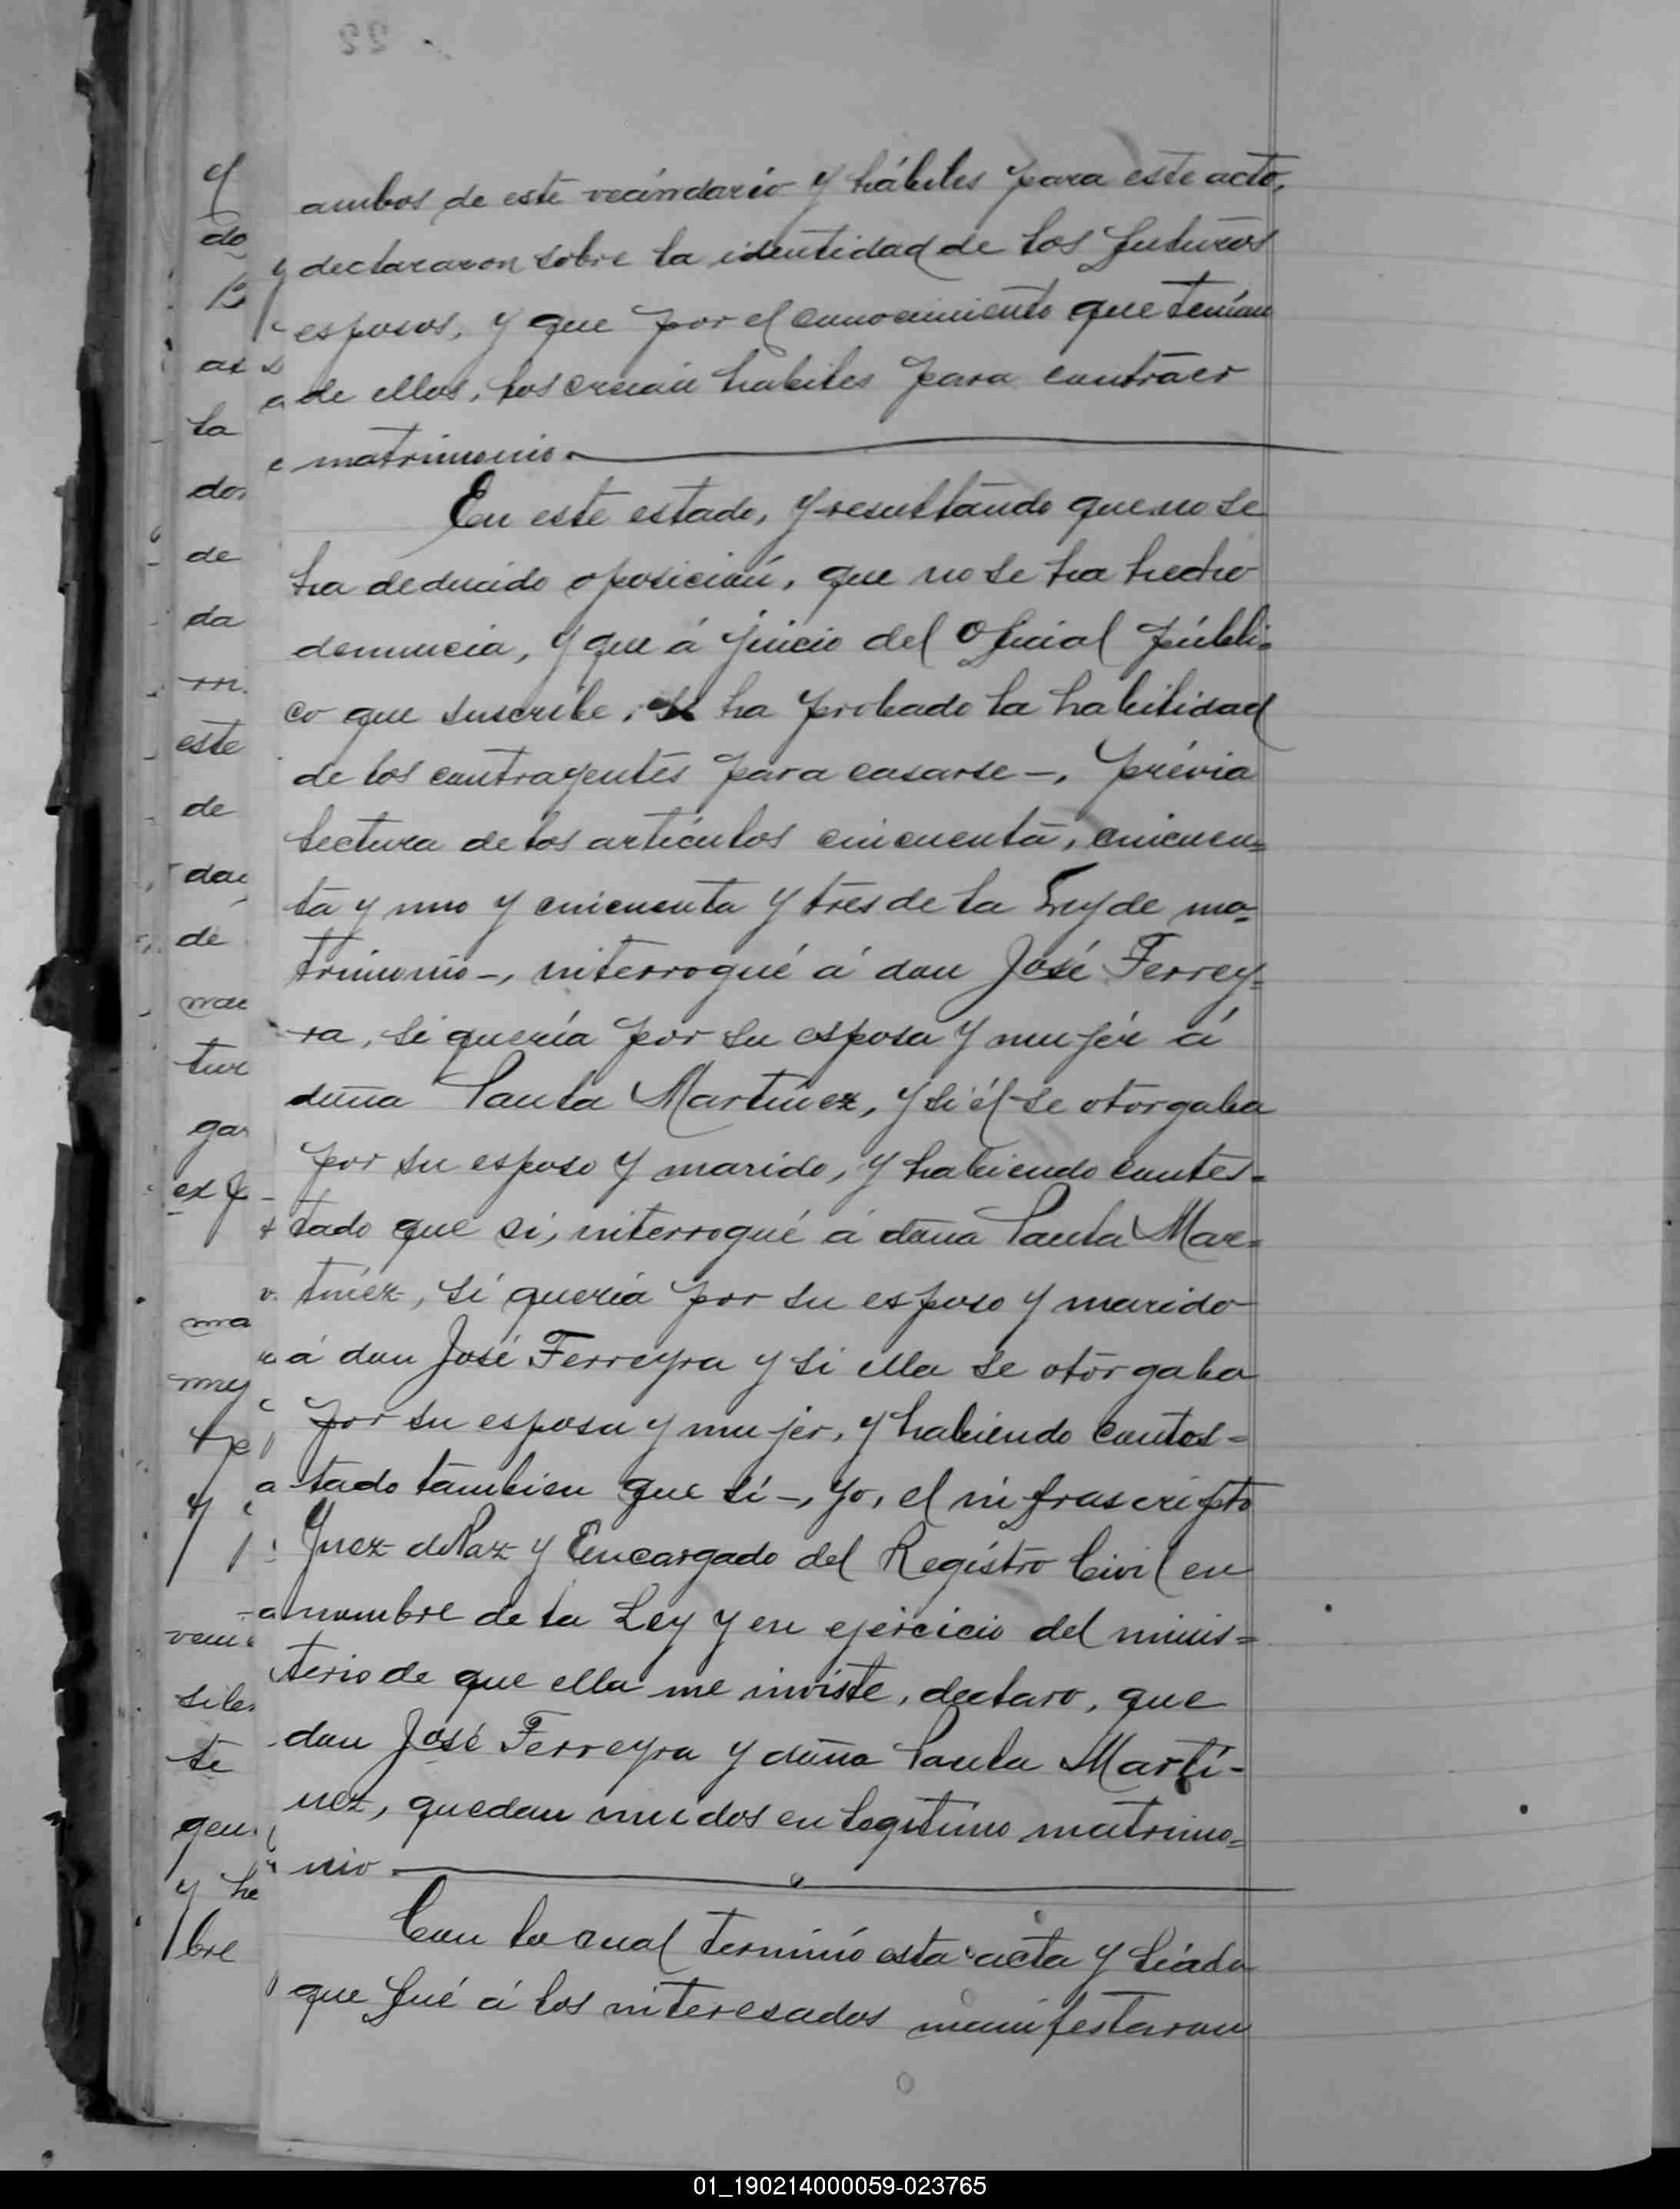 22
ambos de este vecindario y hábiles para este acto,
y declararon sobre la identidad de los futuros
esposos, y que por el conocimiento que tenían
de ellos, los creian habiles para contraer
matrimonio.
En este estado, y resultando que no se
ha deducido oposición, que no se ha hecho
denuncia, y que á juicio del Oficial públi=
co que suscribe, se ha probado la habilidad
de los contrayentes para casarse -, prévia
lectura de los artículos cincuenta, cincuen=
ta y uno y cincuenta y tres de la Ley de ma=
trimonio -, interrogué á don José Ferrey=
ra, si quería por su esposa y mujér á
doña Paula Martínez, y si él se otorgaba
por su esposo y marido, y habiendo contes=
tado que si, interrogué á doña Paula Mar=
tínez, si quería por su esposo y marido
á don José Ferreyra y si ella se otorgaba
por su esposa y mujer, y habiendo contes=
tado tambien que sí -, yo, el infrascripto
Juez de Paz y Encargado del Registro Civil en
nombre de la Ley y en ejercicio del minis=
terio de que ella me inviste, declaro, que
don José Ferreyra y doña Paula Martí-
nez, quedan unidos en legítimo matrimo=
nio
Con lo cual terminó esta acta y leída
que fué á los interesados manifestaron
do
la
de
da
este
de
de
ma
te
y
bre
01_190214000059-023765